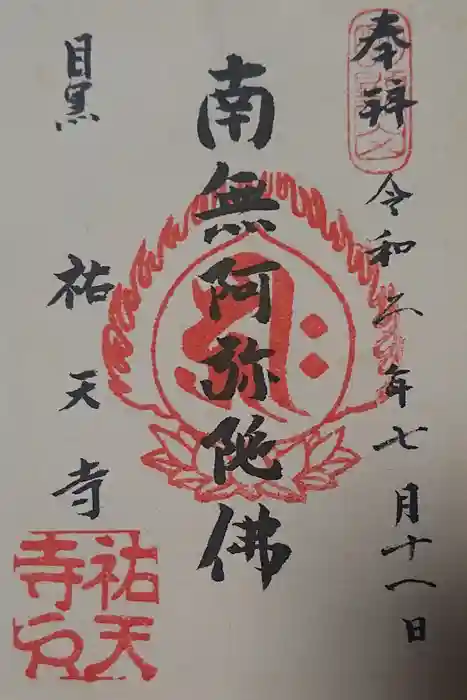 奉拝
令和二年七月十一日
南無阿弥陀佛
目黒
祐天寺
祐天
寺印